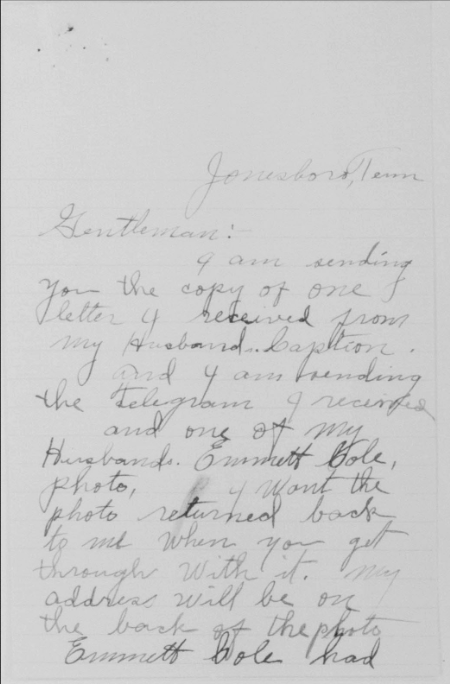 Jonesboro, Tenn
Gentleman:
I am sending
you the copy of one
letter I received from
my Husband. Caption.
and I am sending
the Telegram I received
and one of my
Husbands. Emmett Cole,
photo, I want the
photo returned back
to me when you get
through with it. My
address will be on
the back of the photo
Emmett Cole had